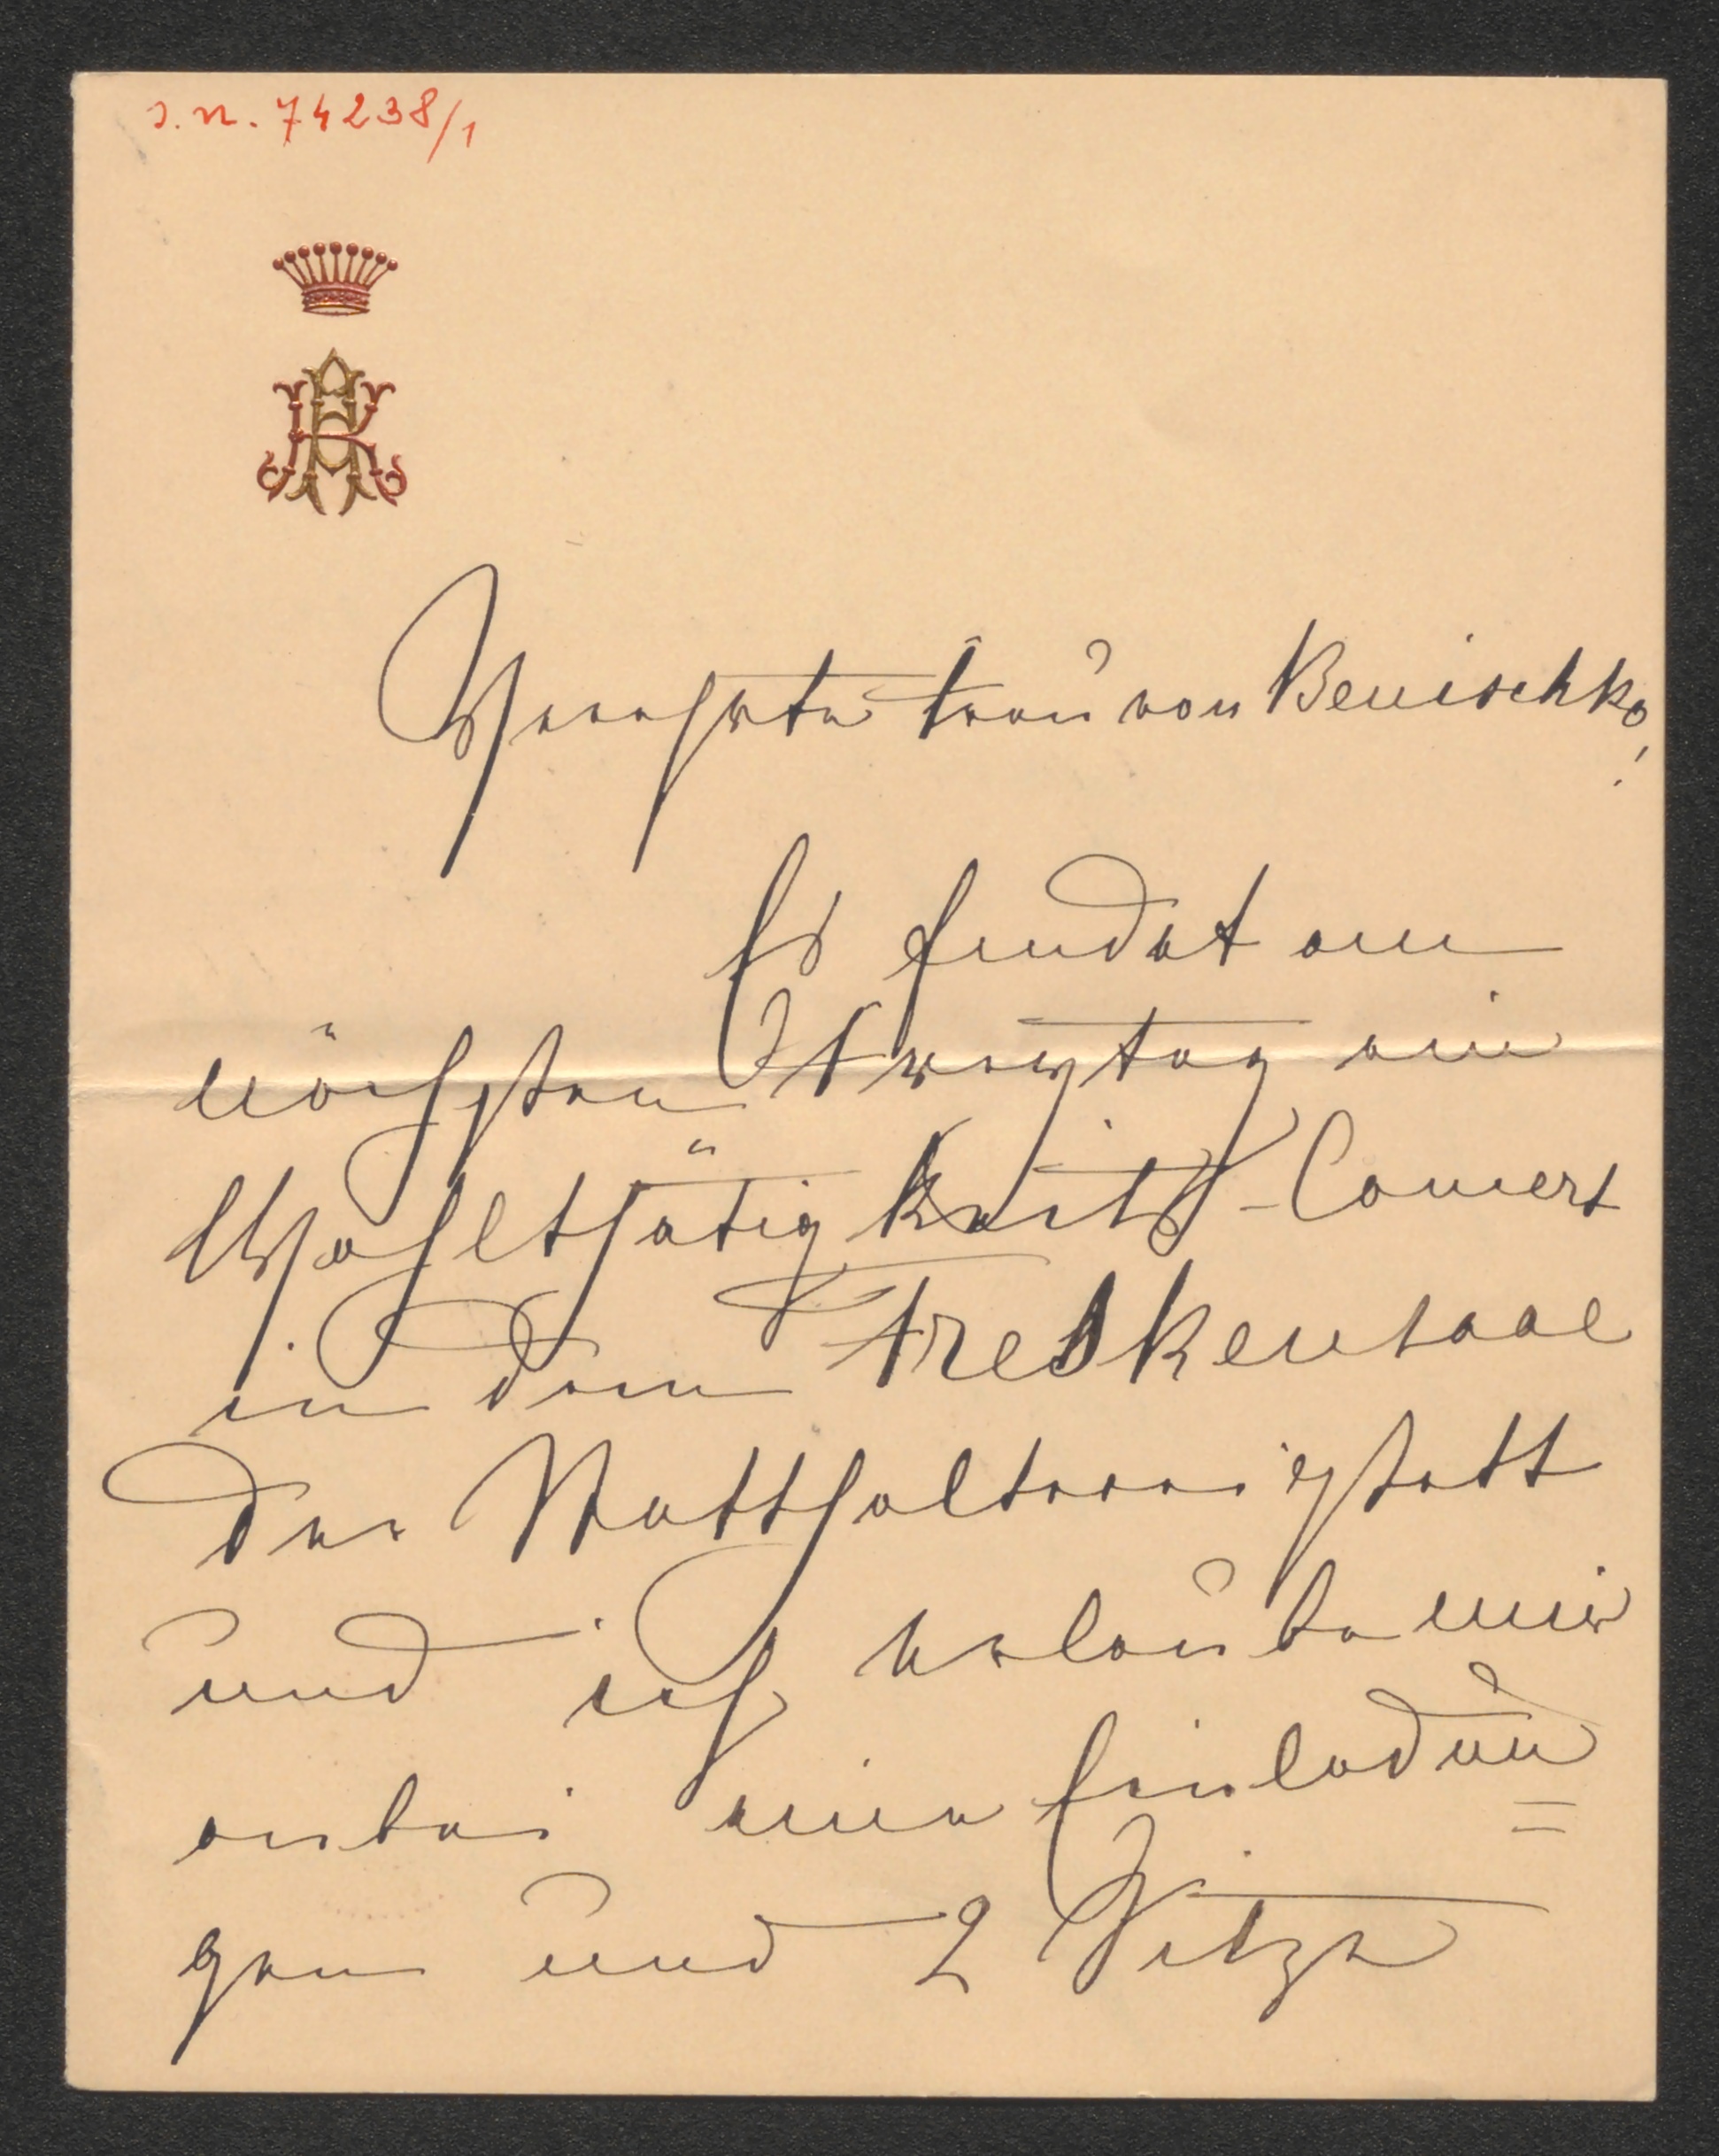 I. N. 74238/1
AK
Verehrte Frau von Benischko!
Es findet am
nächsten Freytag ein
Wohlthätigkeits-Concert
in dem Freskensaal
der Statthalterei statt
und ich erlaube mir
anbei eine Einladun=
gen und 2 Sitze